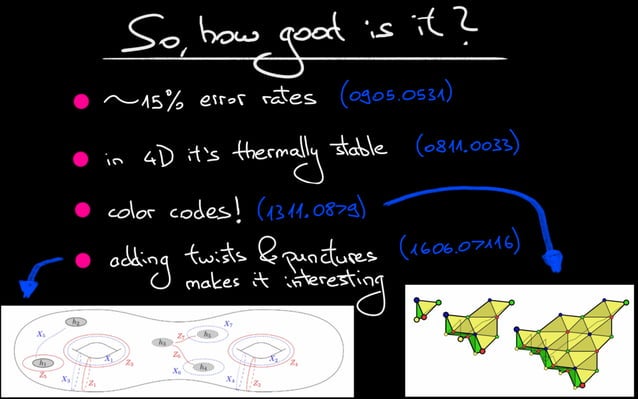 So, how good is it?
~15% error rates (0905.0531)
in 4D it's thermally stable (0811.0033)
color codes! (1311.0879)
adding twists & punctures (1606.07116)
makes it interesting
h₂
X₅
h₁
Z₅
X₁
Z₃
X₃
Z₁
h₃
Z₇
Z₆
h₅
X₇
X₆
h₄
X₂
Z₄
X₄
Z₂